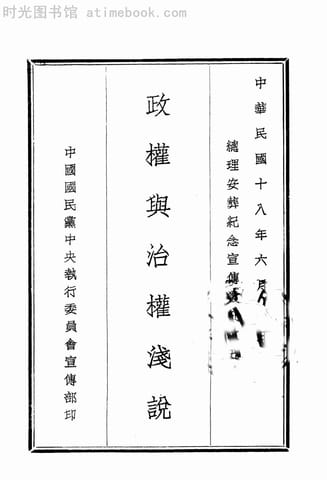 时光图书馆 www.atimebook.com
中華民國十八年六月
總理安葬紀念宣傳
政權與治權淺說
中國國民黨中央執行委員會宣傳部印